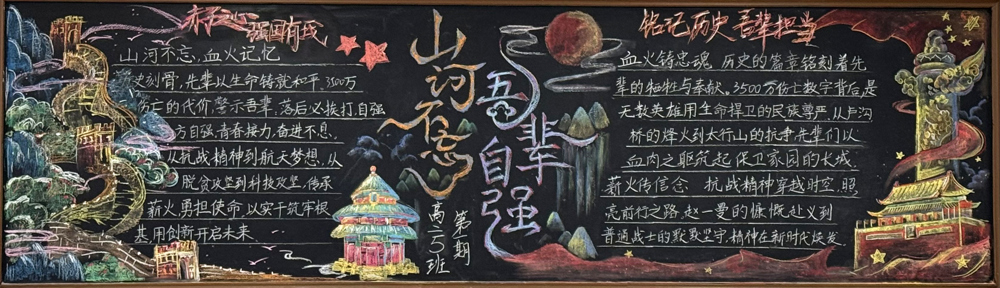 赤子心 强国有我
山河不忘，血火记忆
史刻骨，先辈以生命铸就和平，3500万
伤亡的代价警示吾辈，落后必挨打，自强
方自强青春接力，奋进不息、
从抗战精神到航天梦想，从
脱贫攻坚到科技攻坚，传承
薪火，勇担使命，以实干筑牢根
基，用创新开启未来……
山河不忘
吾辈自强
第 期
高二5班
铭记历史 吾辈担当
血火铸忠魂，历史的篇章铭刻着先
辈的牺牲与奉献，3500万伤亡数字背后，是
无数英雄用生命捍卫的民族尊严，从卢沟
桥的烽火到太行山的抗争，先辈们以
血肉之躯筑起保卫家园的长城
薪火传信念 抗战精神穿越时空，照
亮前行之路，赵一曼的慷慨赴义到
普通战士的默默坚守，精神在新时代焕发